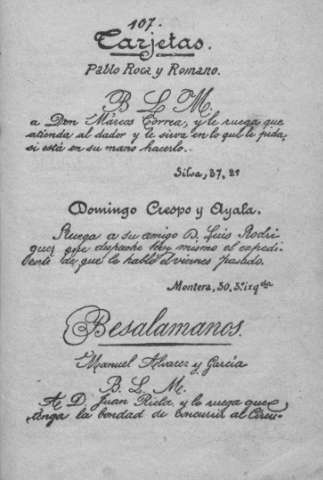 107.
Tarjetas.
Pablo Roca y Romano.
B L M.
a Don Márcos Correa, y le ruega que
atienda al dador y le sirva en lo que le pida,
si está en su mano hacerlo.
Silva, 37, 2º
Domingo Crespo y Ayala.
Ruega a su amigo D. Luis Rodri
guez que despache hoy mismo el espedi
ente de que le habló el viernes pasado.
Montera, 50, 3º izqda
Besalamanos.
Manuel Alvarez y García
B. L. M.
A D. Juan y le ruega que
tenga la bondad de concurrir al